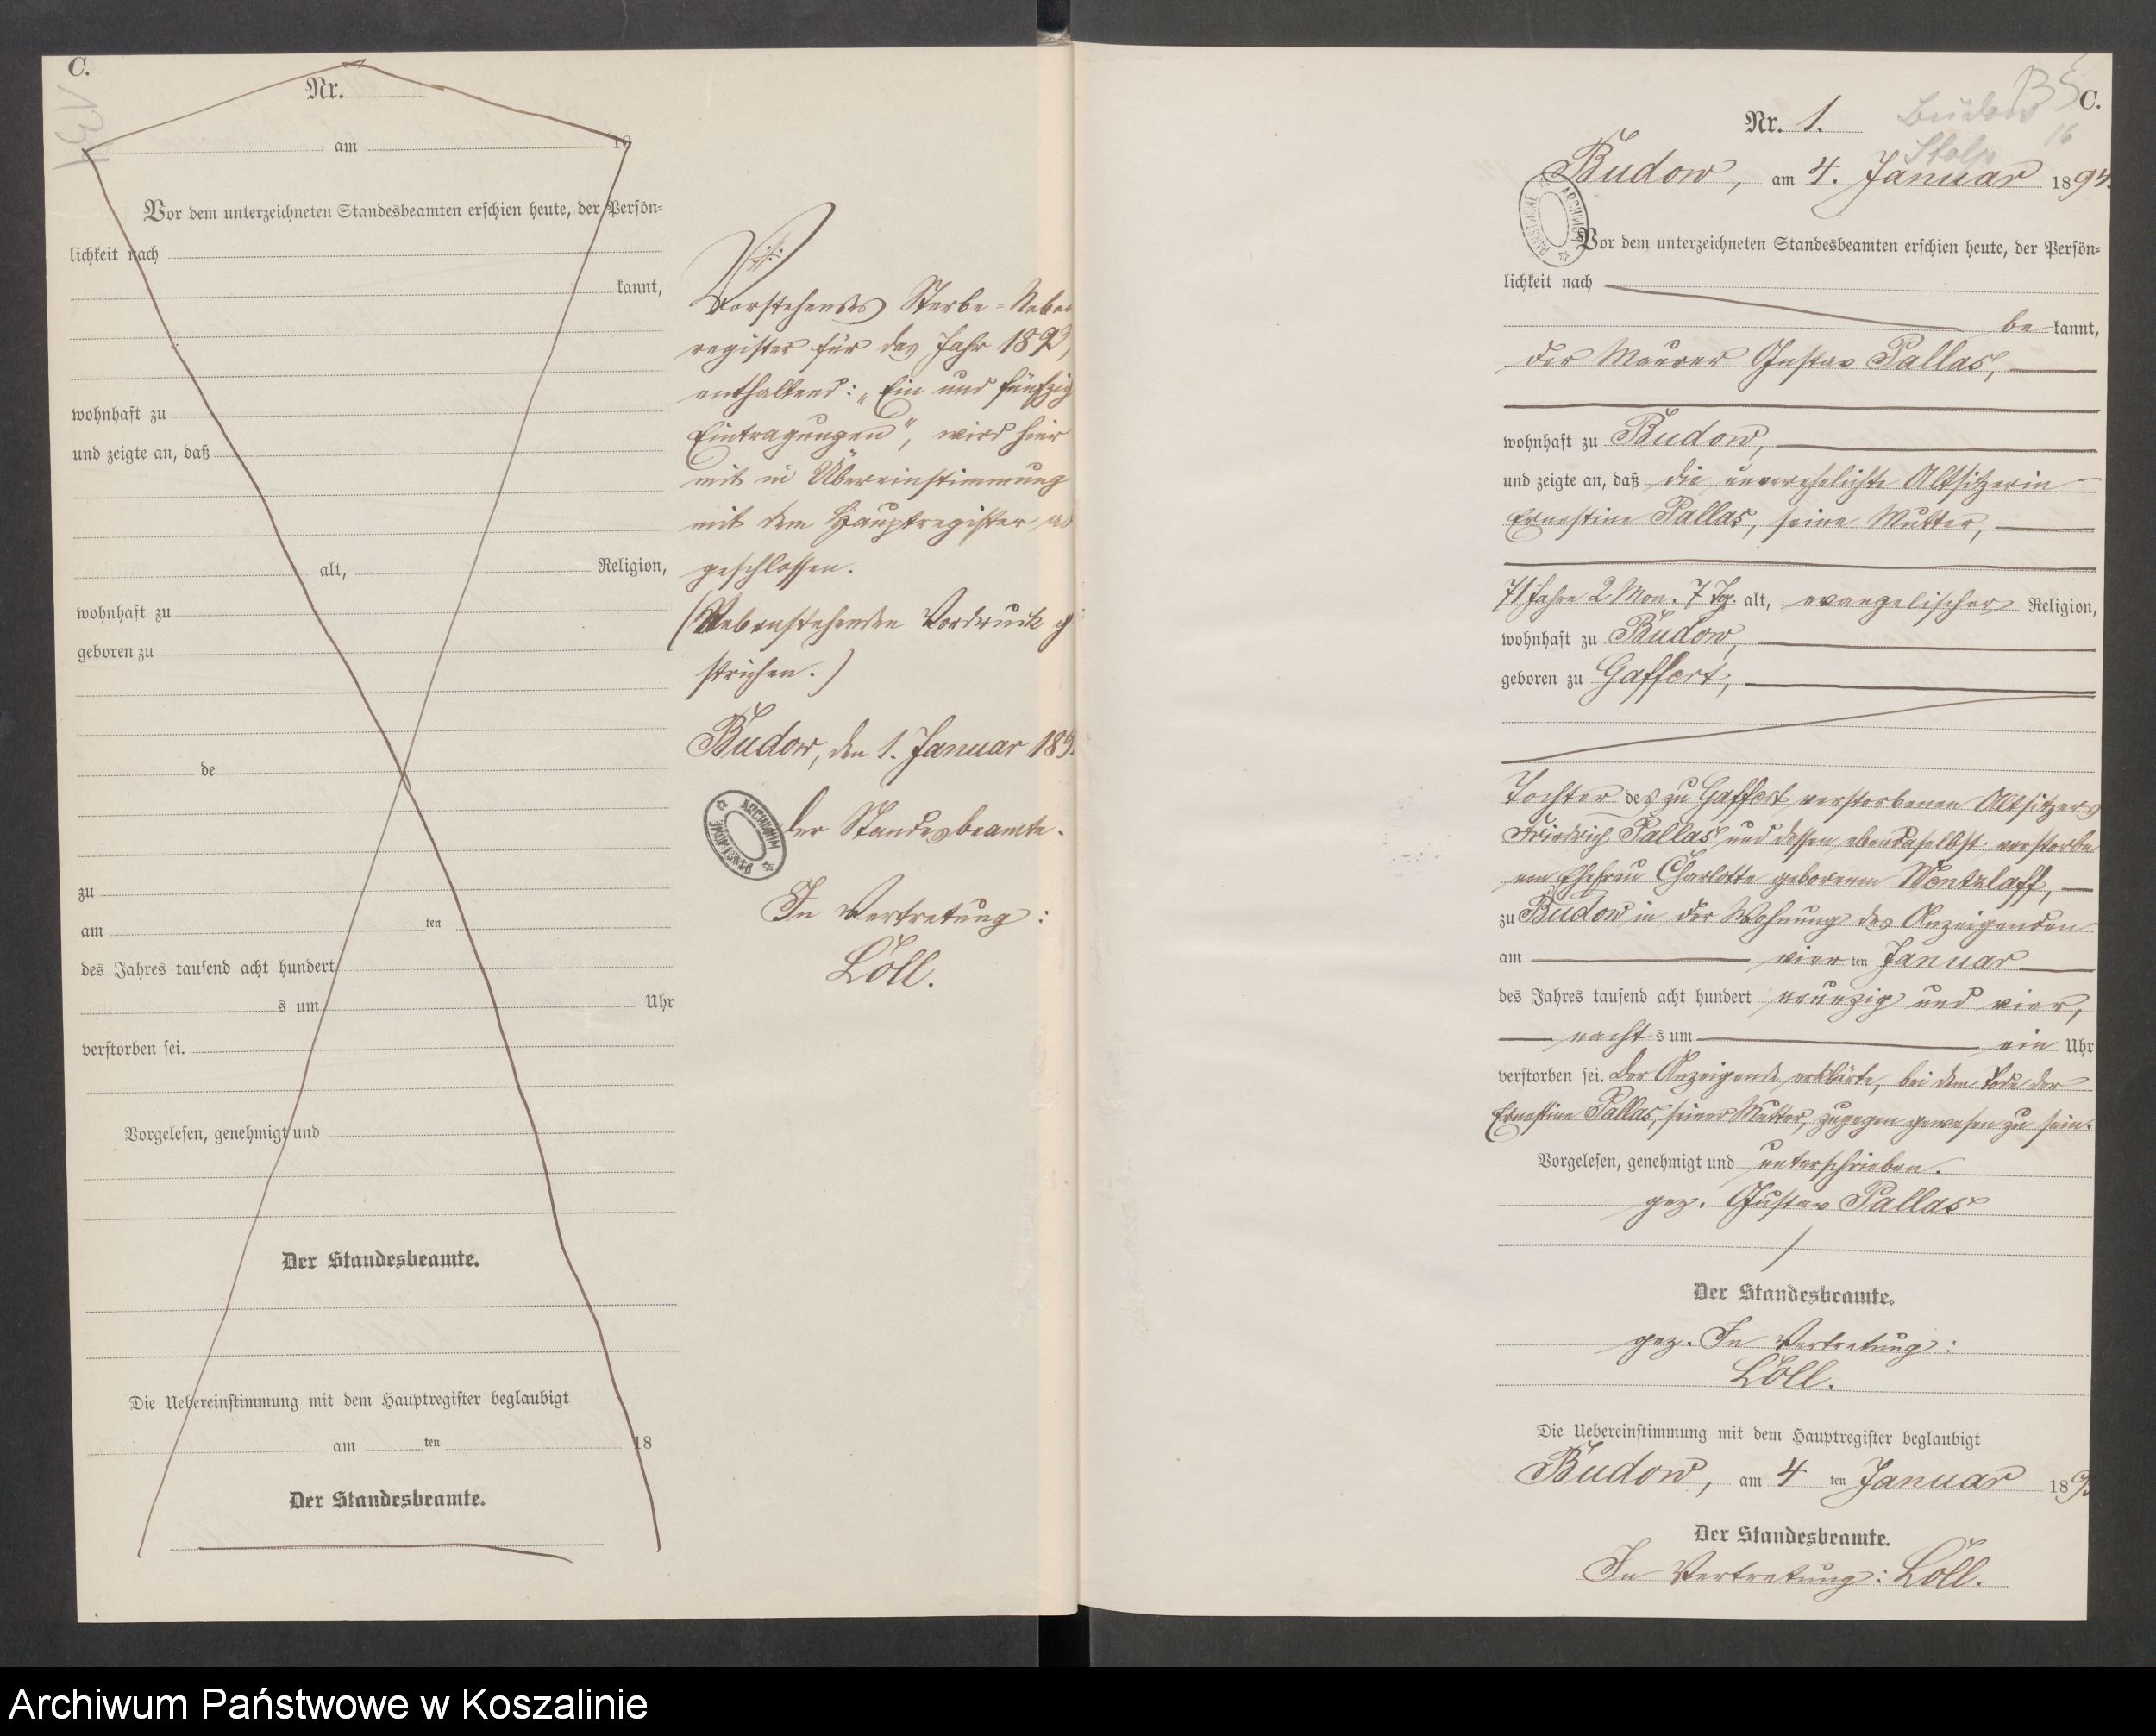 C.
134
Nr.
am 18
Vor dem unterzeichneten Standesbeamten erschien heute, der Persön=
lichkeit nach
kannt,
wohnhaft zu
und zeigte an, daß
alt, Religion,
wohnhaft zu
geboren zu
de
zu
am ten
des Jahres tausend acht hundert
s um Uhr
verstorben sei.
Vorgelesen, genehmigt und
Der Standesbeamte.
Die Uebereinstimmung mit dem Hauptregister beglaubigt
am ten 18
Der Standesbeamte.
Vorstehendes Sterbe=Neben
register für das Jahr 1893,
enthaltend: „Ein und fünfzig
Eintragungen", wird hier
mit in Übereinstimmung
mit dem Hauptregister ab
geschlossen.
(Nebenstehenden Vordruck g
strichen.)
Budow, den 1. Januar 189
ARCHIWUM PAŃSTWOWE
Der Standesbeamte.
In Vertretung:
Löll.
135 C.
Nr. 1.
Budow
Stolp
16
Budow, am 4. Januar 1894.
ARCHIWUM PAŃSTWOWE
Vor dem unterzeichneten Standesbeamten erschien heute, der Persön=
lichkeit nach
be kannt,
der Maurer Gustav Pallas,
wohnhaft zu Budow,
und zeigte an, daß die unverehelichte Altsitzerin
Ernestine Pallas, seine Mutter,
71 Jahre 2 Mon. 7 Tg. alt, evangelischer Religion,
wohnhaft zu Budow,
geboren zu Gaffert,
Tochter des zu Gaffert verstorbenen Altsitzers
Friedrich Pallas und dessen ebendaselbst verstorbe
nen Ehefrau Charlotte geborenen Wentzlaff,
zu Budow in der Wohnung des Anzeigenden
am vier ten Januar
des Jahres tausend acht hundert neunzig und vier,
nacht s um ein Uhr
verstorben sei. Der Anzeigende erklärte, bei dem Tode der
Ernestine Pallas, seiner Mutter, zugegen gewesen zu sein.
Vorgelesen, genehmigt und unterschrieben.
gez. Gustav Pallas
Der Standesbeamte.
gez. In Vertretung:
Löll.
Die Uebereinstimmung mit dem Hauptregister beglaubigt
Budow, am 4 ten Januar 189
Der Standesbeamte.
In Vertretung: Löll.
Archiwum Państwowe w Koszalinie